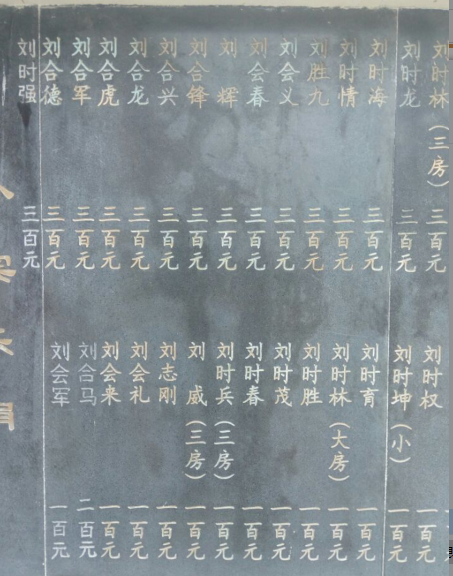 刘时林(三房) 三百元
刘时龙 三百元
刘时海 三百元
刘时情 三百元
刘胜九 三百元
刘会义 三百元
刘会春 三百元
刘辉 三百元
刘合锋 三百元
刘合兴 三百元
刘合龙 三百元
刘合虎 三百元
刘合军 三百元
刘合德 三百元
刘时强 三百元
刘时权 一百元
刘时坤(小) 一百元
刘时育 一百元
刘时林(大房) 一百元
刘时胜 一百元
刘时茂 一百元
刘时春 一百元
刘时兵(三房) 一百元
刘威(三房) 一百元
刘志刚 一百元
刘会礼 一百元
刘会来 一百元
刘合马 二百元
刘会军 一百元